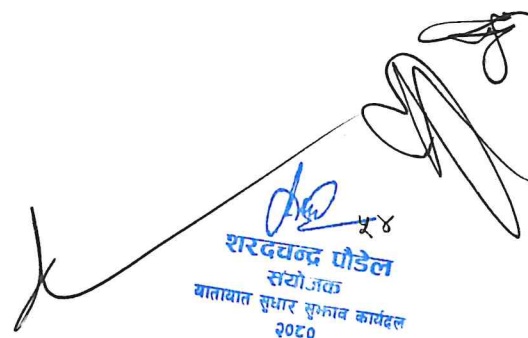 ५४
शरदचन्द्र पौडेल
संयोजक
यातायात सुधार सुझाव कार्यदल
२०८०